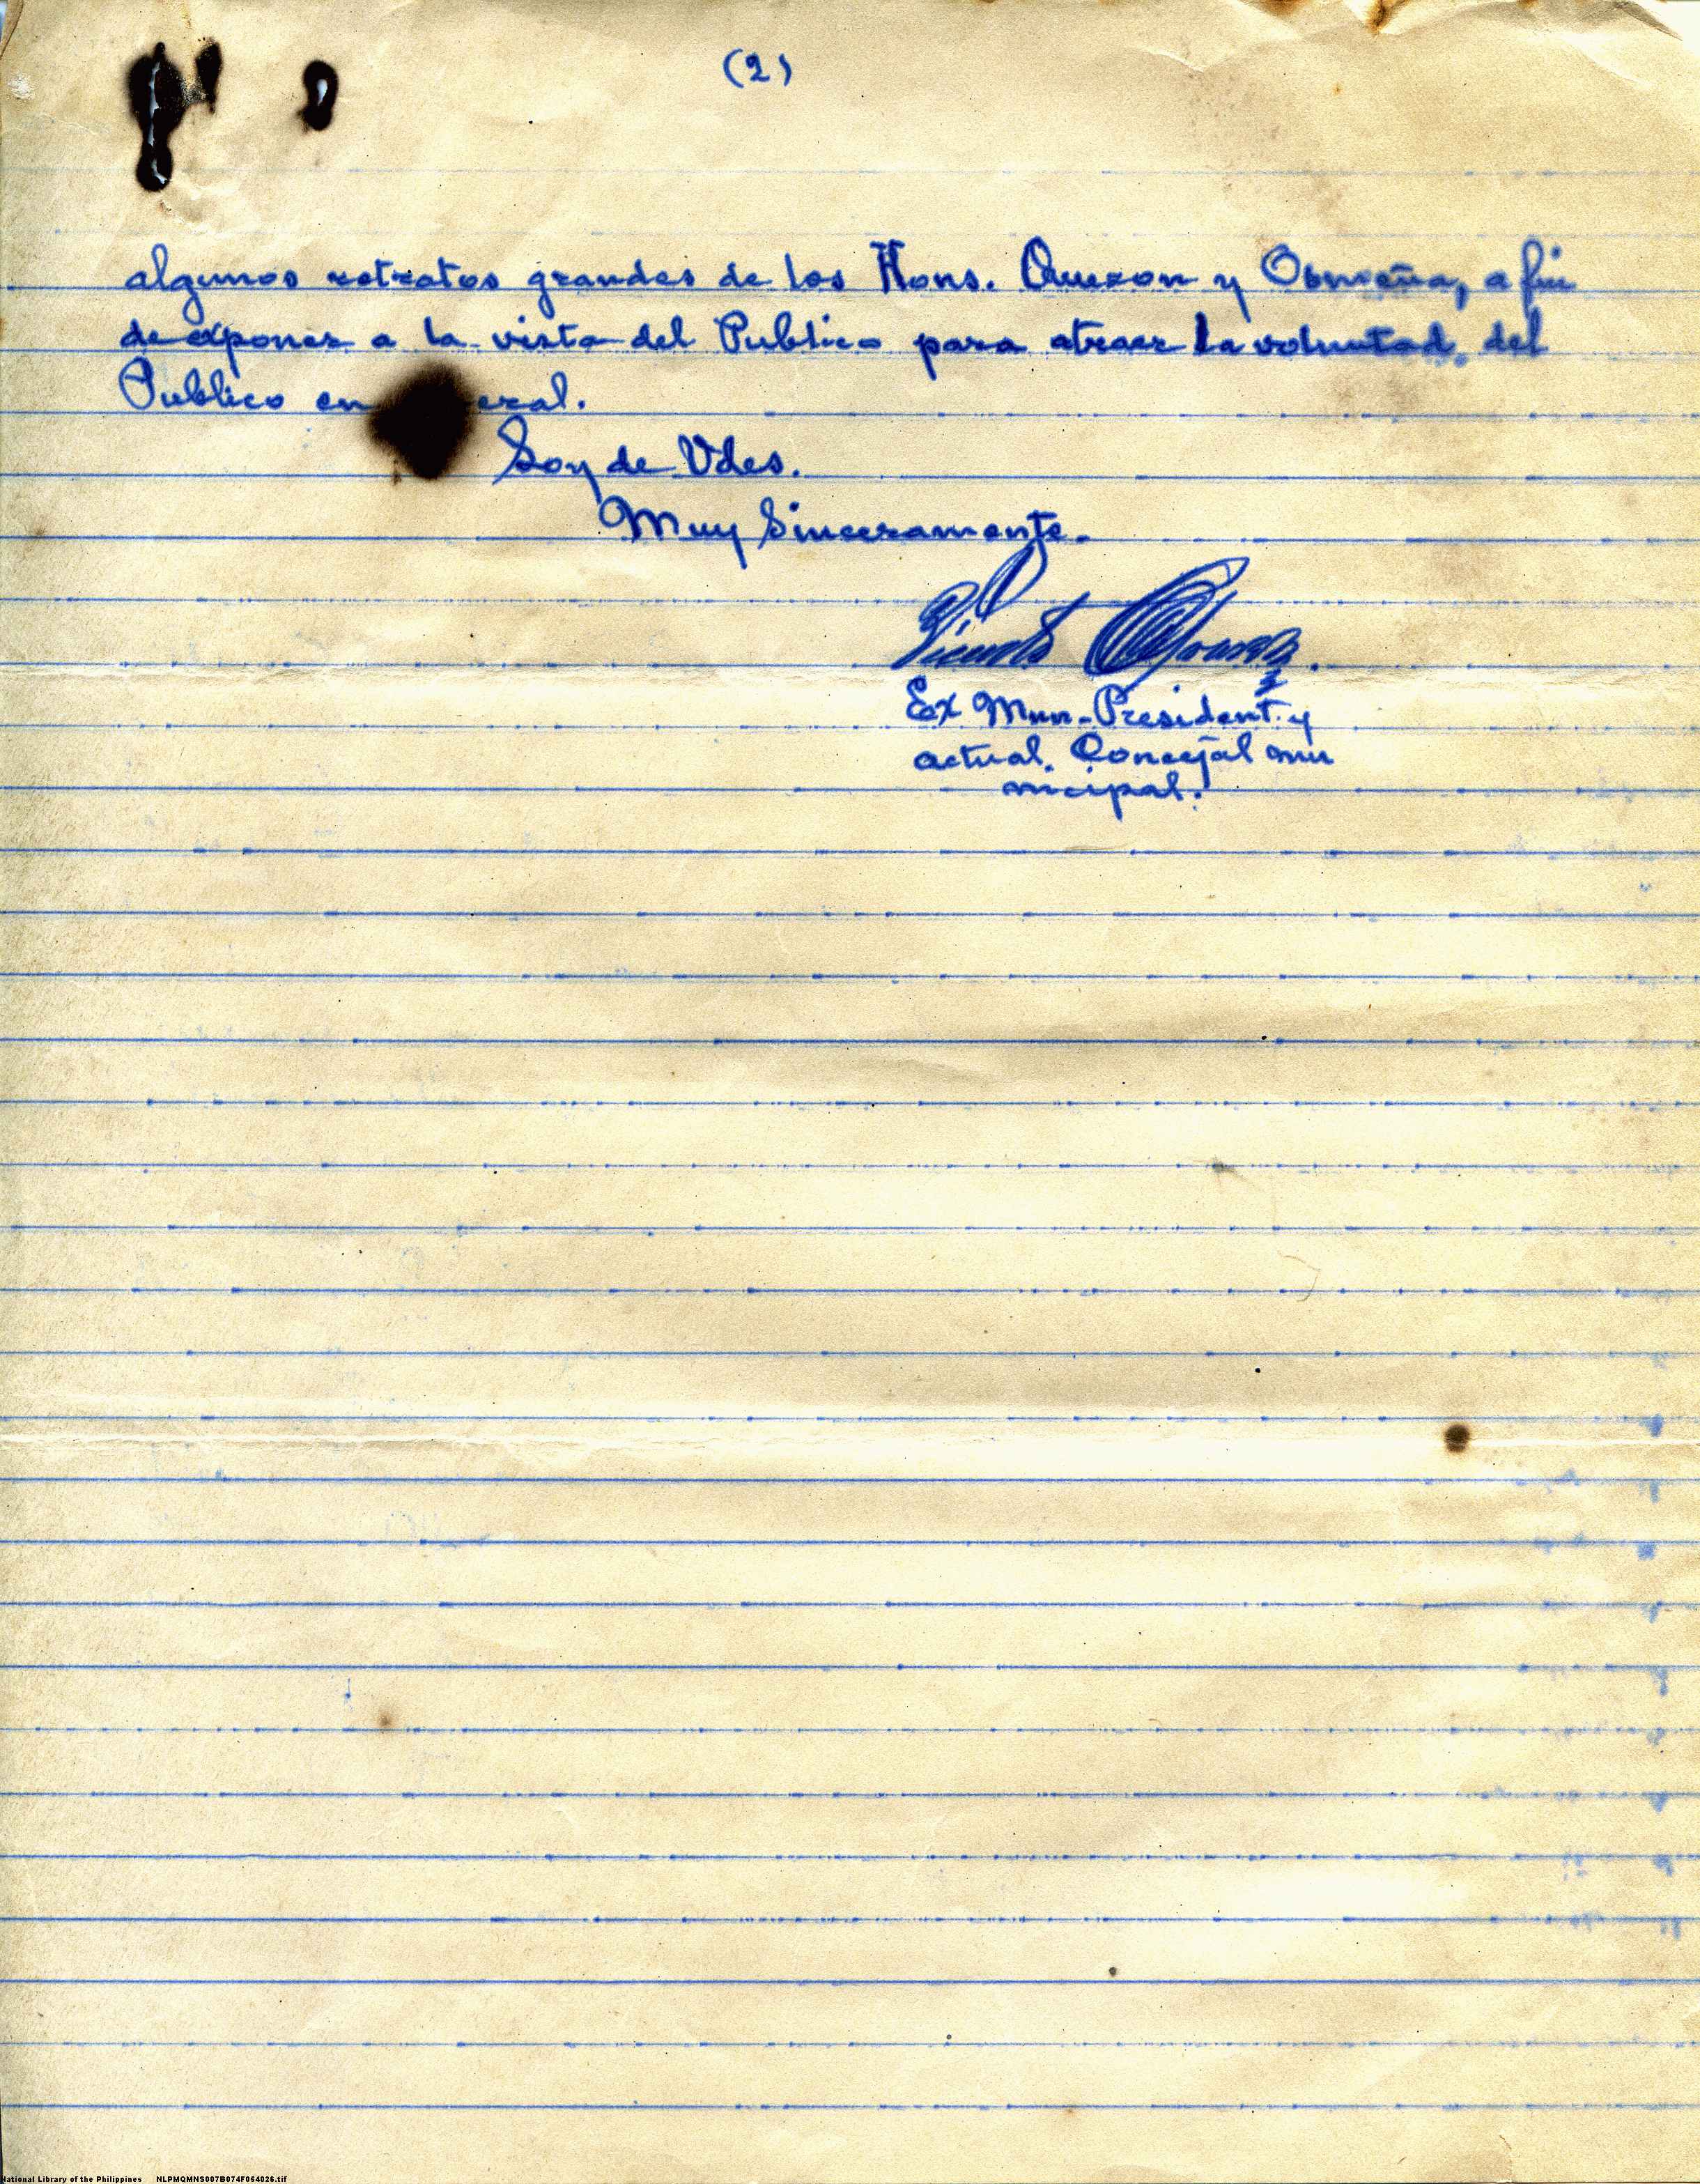 (2)
algunos retratos grandes de los Hons. Quezon y Osmeña, a fin
de exponer a la vista del Publico para atraer la voluntad. del
Publico en eral.
Soy de Vdes.
Muy Sinceramente.
Vicente
Ex Mun-President. y
actual. Concejal mu
nicipal.
National Library of the Philippines NLPMQMNS007B074F054026.tif